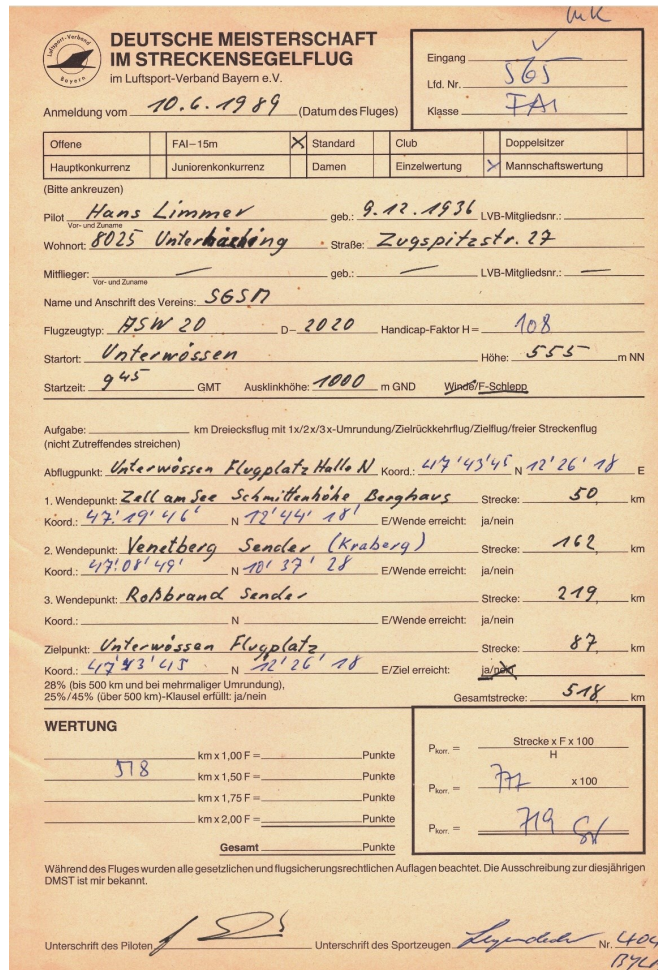 MK
Luftsport-Verband Bayern
DEUTSCHE MEISTERSCHAFT
IM STRECKENSEGELFLUG
im Luftsport-Verband Bayern e.V.
Eingang
Lfd. Nr. 565
Klasse FAI
Anmeldung vom 10.6.1989 (Datum des Fluges)
Offene FAI–15m X Standard Club Doppelsitzer
Hauptkonkurrenz Juniorenkonkurrenz Damen Einzelwertung X Mannschaftswertung
(Bitte ankreuzen)
Pilot Hans Limmer geb.: 9.12.1936 LVB-Mitgliedsnr.:
Vor- und Zuname
Wohnort: 8025 Unterhaching Straße: Zugspitzstr. 27
Mitflieger: — geb.: — LVB-Mitgliedsnr.: —
Vor- und Zuname
Name und Anschrift des Vereins: SGSM
Flugzeugtyp: ASW 20 D– 2020 Handicap-Faktor H = 108
Startort: Unterwössen Höhe: 555 m NN
Startzeit: 9 45 GMT Ausklinkhöhe: 1000 m GND Winde/F-Schlepp
Aufgabe: km Dreiecksflug mit 1x/2x/3x-Umrundung/Zielrückkehrflug/Zielflug/freier Streckenflug
(nicht Zutreffendes streichen)
Abflugpunkt: Unterwössen Flugplatz Halle N Koord.: 47'43'45 N 12'26'18 E
1. Wendepunkt: Zell am See Schmittenhöhe Berghaus Strecke: 50 km
Koord.: 47'19'46' N 12'44'18' E/Wende erreicht: ja/nein
2. Wendepunkt: Venetberg Sender (Kraberg) Strecke: 162 km
Koord.: 47'08'49' N 10'37'28 E/Wende erreicht: ja/nein
3. Wendepunkt: Roßbrand Sender Strecke: 219 km
Koord.: N E/Wende erreicht: ja/nein
Zielpunkt: Unterwössen Flugplatz Strecke: 87 km
Koord.: 47'43'45 N 12'26'18 E/Ziel erreicht: ja/nein
28% (bis 500 km und bei mehrmaliger Umrundung),
25%/45% (über 500 km)-Klausel erfüllt: ja/nein Gesamtstrecke: 518 km
WERTUNG
km x 1,00 F = Punkte
518 km x 1,50 F = Punkte
km x 1,75 F = Punkte
km x 2,00 F = Punkte
Gesamt Punkte
Pkorr. = Strecke x F x 100
H
Pkorr. = 777 x 100
Pkorr. = 719
Während des Fluges wurden alle gesetzlichen und flugsicherungsrechtlichen Auflagen beachtet. Die Ausschreibung zur diesjährigen
DMST ist mir bekannt.
Unterschrift des Piloten Unterschrift des Sportzeugen Nr. 404
BYLM